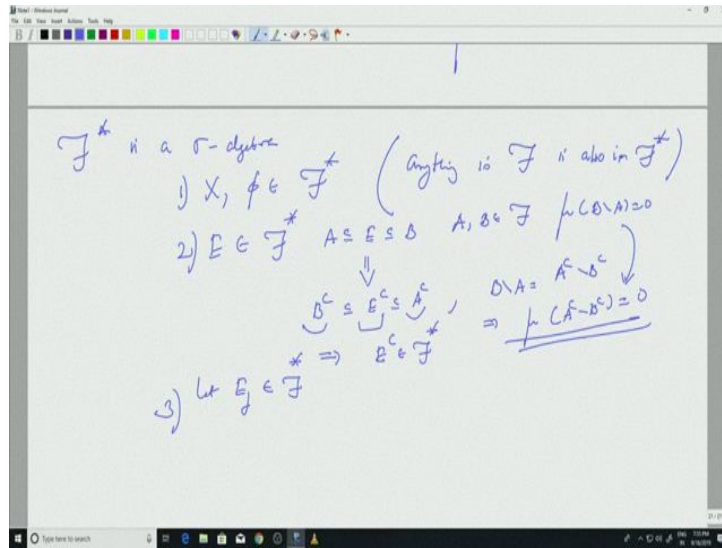 Note1 - Windows Journal
File Edit View Insert Actions Tools Help
B I
𝓕* is a σ-algebra
1) X, ϕ ∈ 𝓕* (Anything is 𝓕 is also in 𝓕*)
2) E ∈ 𝓕* A ⊆ E ⊆ B A, B ∈ 𝓕 μ(B\A)=0
⇓
B^c ⊆ E^c ⊆ A^c, B\A = A^c \ B^c
⇒ E^c ∈ 𝓕* ⇒ μ(A^c - B^c) = 0
3) Let E_j ∈ 𝓕*
21/21
Type here to search
ENG 7:55 PM
IN 9/16/2019